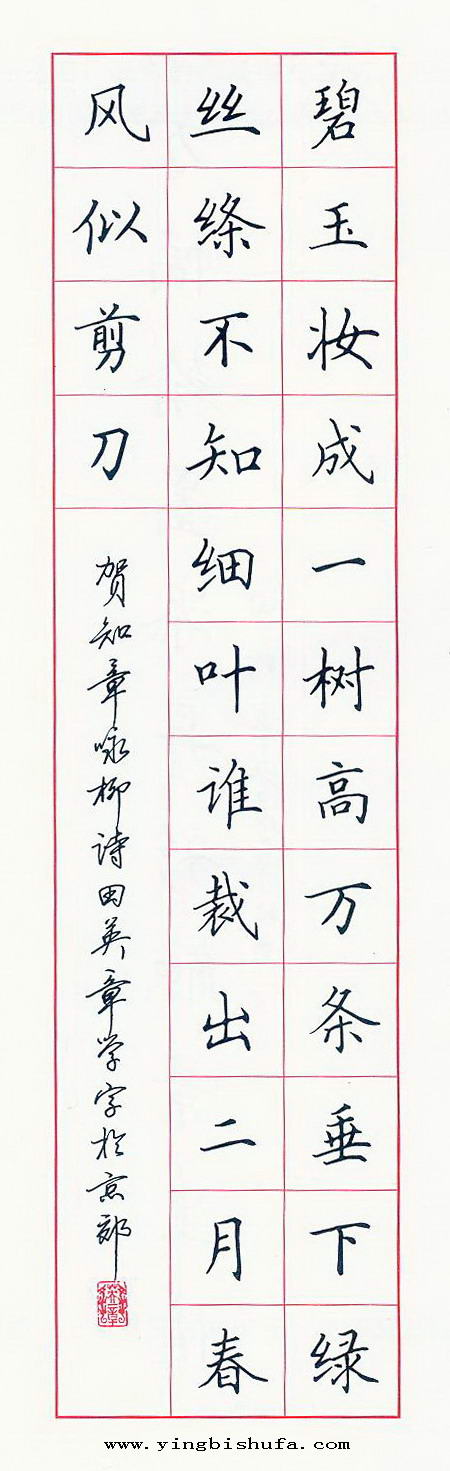 碧玉妆成一树高万条垂下绿
丝绦不知细叶谁裁出二月春
风似剪刀
贺知章咏柳诗田英章学字于京郊
英章
www.yingbishufa.com